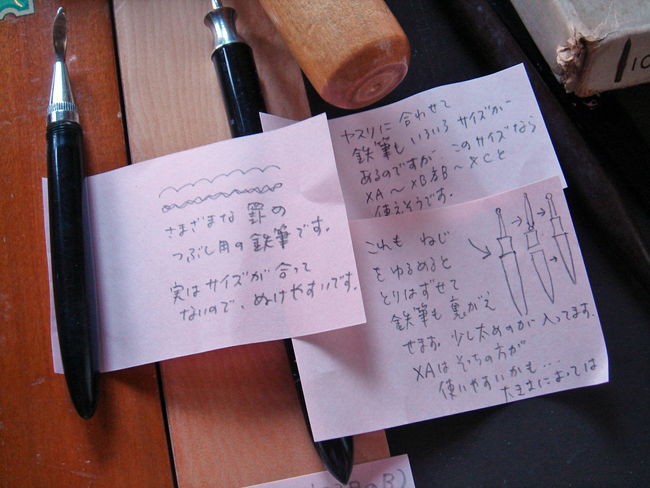 さまざまな 罫の
つぶし用の鉄筆です。
実はサイズが合って
ないので、ぬけやすいです。
ヤスリに 合わせて
鉄筆も いろいろ サイズが
あるのですが、このサイズなら
XA～XB XB～XCと
使えそうです。
これも ねじ
を ゆるめると
とりはずせて
鉄筆も 裏がえ
せます。少し太めのが 入ってます。
XAは そっちの方が
使いやすいかも…
大きさによっては
10